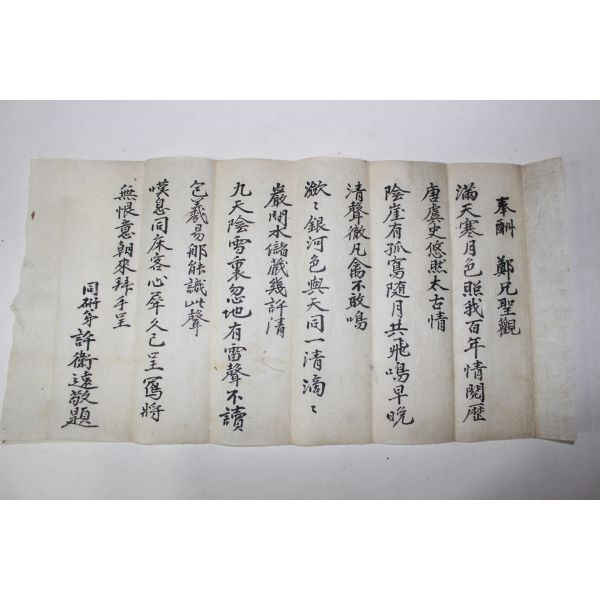 奉酬　鄭兄聖觀
滿天寒月色照我百年情閱歷
唐虞史悠然太古情
陰崖有孤鶱隨月共飛鳴早晚
清聲徹凡禽不敢鳴
漱〻銀河色與天同一清滴〻
巖閒水儲藏幾許清
九天陰雪裏忽地有雷聲不讀
包羲易那能識此聲
嘆息同床客心犀久已呈寫將
無恨意朝來拜手呈
同研弟許衛遠敬題